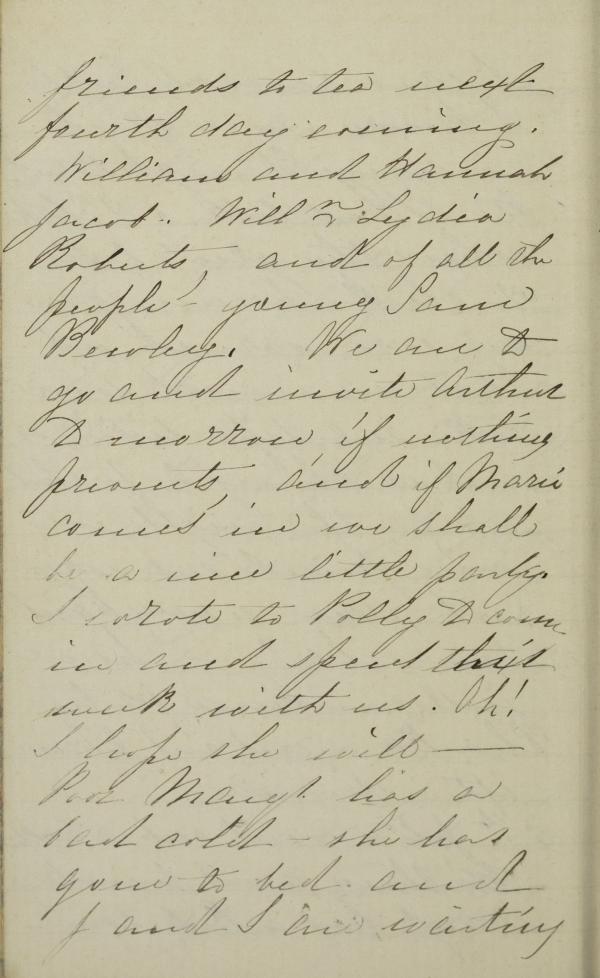 friends to tea next
fourth day evening.
William and Hannah
Jacob. Will & Lydia
Roberts, and of all the
people - young Sam
Bewley. We are to
go and invite Arthur
to morrow if nothing
prevents, and if Marie
comes in we shall
be a nice little party.
I wrote to Polly to come
in and spend this
week with us. Oh!
I hope she will —
Poor Margt. has a
bad cold - she has
gone to bed and
J and I are waiting